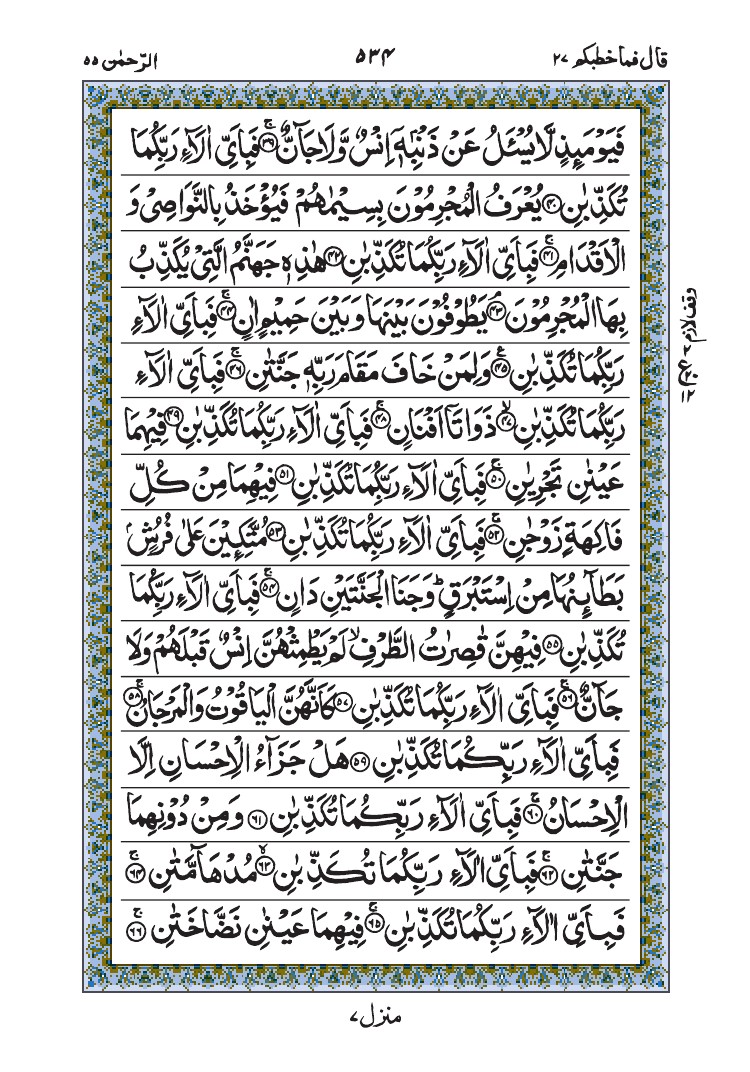 قال فما خطبکم ۲۷
۵۳۴
الرّحمٰن ۵۵
فَیَوْمَىِٕذٍ لَّا یُسْـَٔلُ عَنْ ذَنْۢبِهٖۤ اِنْسٌ وَّ لَا جَآنٌّۚ۝۳۹ فَبِاَیِّ اٰلَآءِ رَبِّكُمَا
تُكَذِّبٰنِ۝۴۰ یُعْرَفُ الْمُجْرِمُوْنَ بِسِیْمٰىهُمْ فَیُؤْخَذُ بِالنَّوَاصِیْ وَ
الْاَقْدَامِۚ۝۴۱ فَبِاَیِّ اٰلَآءِ رَبِّكُمَا تُكَذِّبٰنِ۝۴۲ هٰذِهٖ جَهَنَّمُ الَّتِیْ یُكَذِّبُ
بِهَا الْمُجْرِمُوْنَۘ۝۴۳ یَطُوْفُوْنَ بَیْنَهَا وَ بَیْنَ حَمِیْمٍ اٰنٍۚ۝۴۴ فَبِاَیِّ اٰلَآءِ
رَبِّكُمَا تُكَذِّبٰنِ۠۝۴۵ وَ لِمَنْ خَافَ مَقَامَ رَبِّهٖ جَنَّتٰنِۚ۝۴۶ فَبِاَیِّ اٰلَآءِ
رَبِّكُمَا تُكَذِّبٰنِۙ۝۴۷ ذَوَاتَاۤ اَفْنَانٍۚ۝۴۸ فَبِاَیِّ اٰلَآءِ رَبِّكُمَا تُكَذِّبٰنِ۝۴۹ فِیْهِمَا
عَیْنٰنِ تَجْرِیٰنِۚ۝۵۰ فَبِاَیِّ اٰلَآءِ رَبِّكُمَا تُكَذِّبٰنِ۝۵۱ فِیْهِمَا مِنْ كُلِّ
فَاكِهَةٍ زَوْجٰنِۚ۝۵۲ فَبِاَیِّ اٰلَآءِ رَبِّكُمَا تُكَذِّبٰنِ۝۵۳ مُتَّكِـِٕیْنَ عَلٰى فُرُشٍۭ
بَطَآىِٕنُهَا مِنْ اِسْتَبْرَقٍؕ وَ جَنَا الْجَنَّتَیْنِ دَانٍۚ۝۵۴ فَبِاَیِّ اٰلَآءِ رَبِّكُمَا
تُكَذِّبٰنِ۝۵۵ فِیْهِنَّ قٰصِرٰتُ الطَّرْفِۙ لَمْ یَطْمِثْهُنَّ اِنْسٌ قَبْلَهُمْ وَ لَا
جَآنٌّۚ۝۵۶ فَبِاَیِّ اٰلَآءِ رَبِّكُمَا تُكَذِّبٰنِ۝۵۷ كَاَنَّهُنَّ الْیَاقُوْتُ وَ الْمَرْجَانُۚ۝۵۸
فَبِاَیِّ اٰلَآءِ رَبِّكُمَا تُكَذِّبٰنِ۝۵۹ هَلْ جَزَآءُ الْاِحْسَانِ اِلَّا
الْاِحْسَانُۚ۝۶۰ فَبِاَیِّ اٰلَآءِ رَبِّكُمَا تُكَذِّبٰنِ۝۶۱ وَ مِنْ دُوْنِهِمَا
جَنَّتٰنِۚ۝۶۲ فَبِاَیِّ اٰلَآءِ رَبِّكُمَا تُكَذِّبٰنِۙ۝۶۳ مُدْهَآمَّتٰنِۚ۝۶۴
فَبِاَیِّ اٰلَآءِ رَبِّكُمَا تُكَذِّبٰنِۚ۝۶۵ فِیْهِمَا عَیْنٰنِ نَضَّاخَتٰنِۚ۝۶۶
وقف لازم
منزل ۷